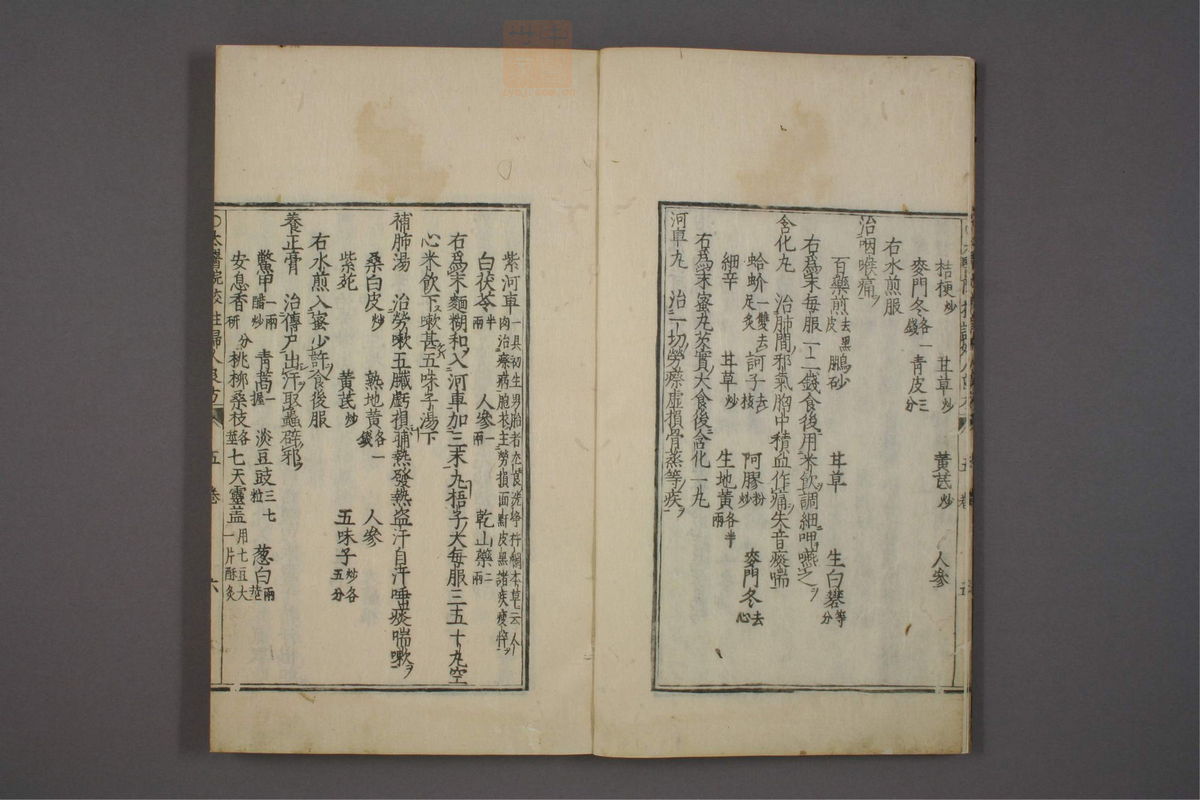 桔梗炒 甘草炒 黃芪炒 人參
麥門冬各一錢 青皮三分
右水煎服
治咽喉痛ヲ
百藥煎去黑皮 鵬砂 甘草 生白礬等分
右爲末每服一二錢食後用米飲調細呷嚥之ヲ
含化丸 治肺間邪氣胸中積血作痛失音痰喘
蛤蚧一雙去足炙 訶子去核 阿膠粉炒 麥門冬去心
細辛 甘草炒 生地黃各半兩
右爲末蜜丸芡實大食後含化一丸
河車丸 治一切勞瘵虛損骨蒸等疾ヲ
紫河車一具初生男胎者尤良洗淨杵爛本草云人肉治療病胞衣主勞損面䵟皮黑諸疾瘦悴
白茯苓半兩 人參一兩 乾山藥二兩
右爲末麵糊和入河車加三末丸梧子大每服三五十丸空
心米飲下嗽甚五味子湯下
補肺湯 治勞嗽五臟虧損晡熱發熱盜汗自汗唾痰喘嗽ヲ
桑白皮炒 熟地黃各一錢 人參
紫苑 黃芪炒 五味子炒各五分
右水煎入蜜少許食後服
養正膏 治傳尸出汗取蟲辟邪ヲ
鱉甲一兩醋炒 青蒿一握 淡豆豉三七粒 葱白兩莖
安息香研分 桃柳桑枝各莖 七天靈蓋用七豆大一片酥炙
〇太醫院校註婦人良方 五卷 六